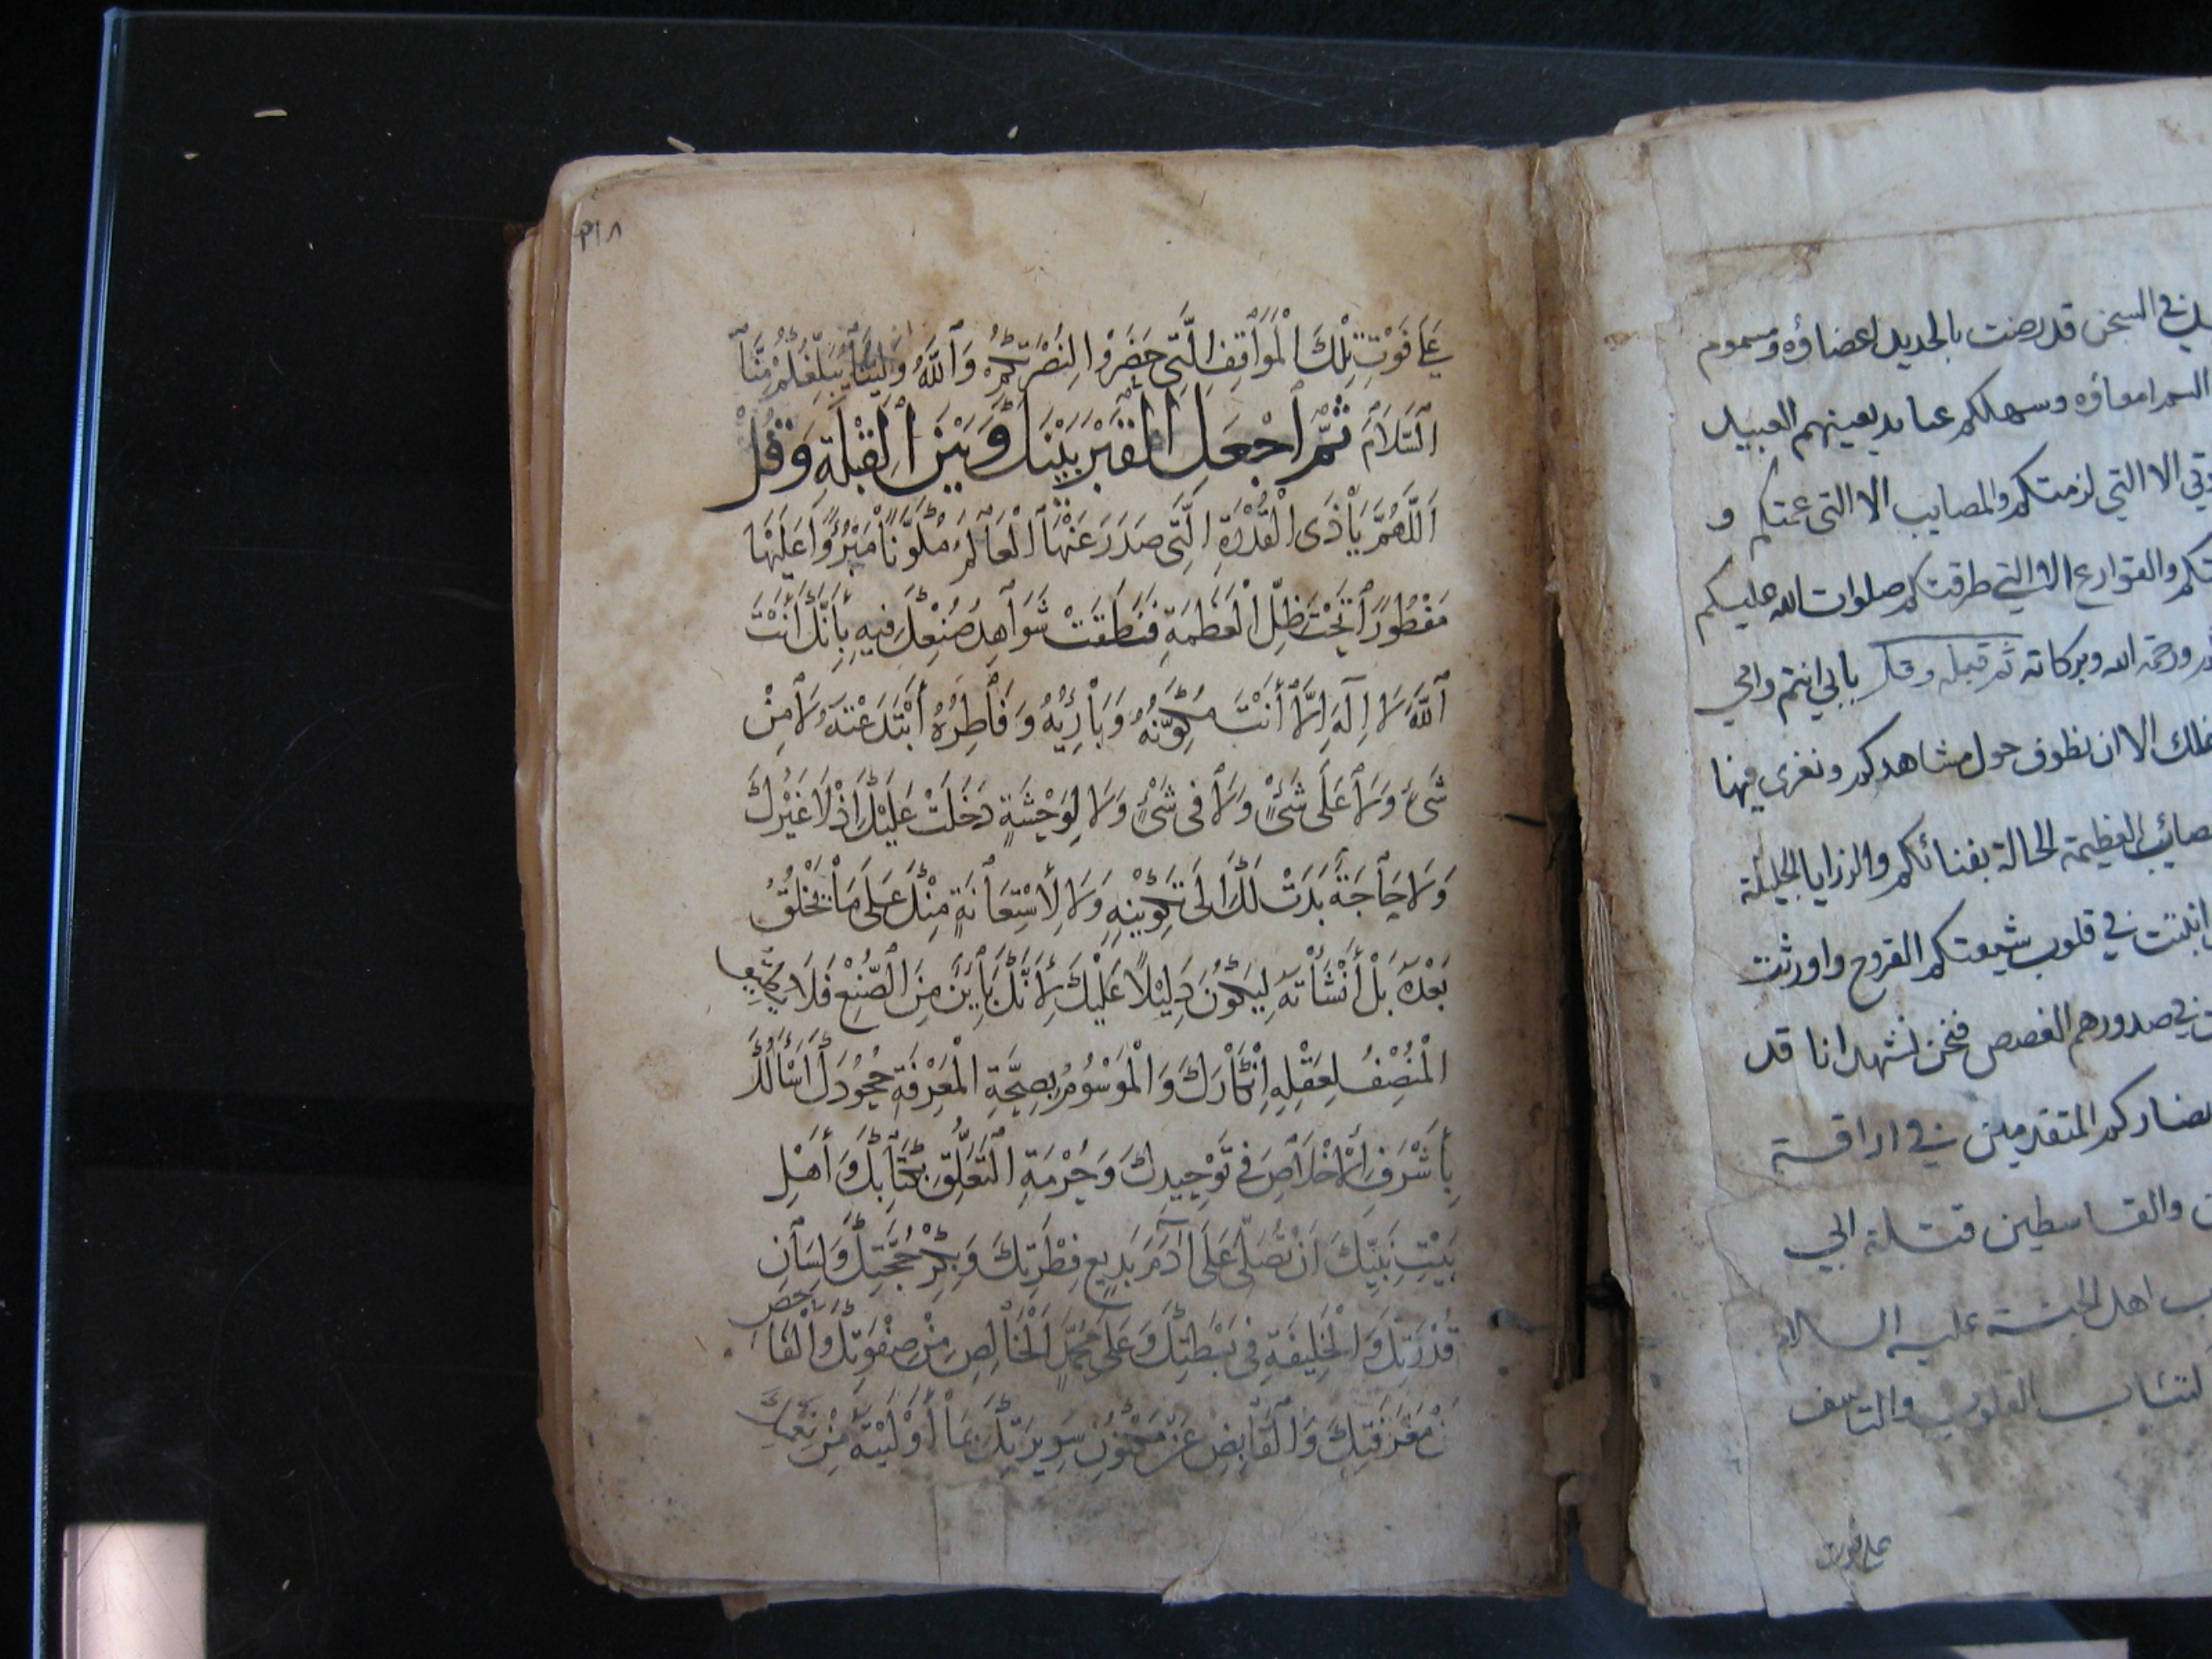 ين في السجن قد رضت بالحديد اعضاؤه ومسموم
السم امعاؤه وسملكم عباديد يفنيهم العبيد
الا التي لزمتكم والمصايب الا التي عمتكم و
والقوارع الا التي طرقتكم صلوات الله عليكم
ورحمة الله وبركاته ثم قبله وقل بابي انتم وامي
نملك الا ان نطوف حول مشاهدكم ونعزى فيها
العظيمة الحالة بفنائكم والرزايا الجليلة
في قلوب شيعتكم القروح واورثت
في صدورهم الغصص فنحن نشهد انا قد
المتقدمين في اراقة
والقاسطين قتلة ابي
اهل الجنة عليه السلام
القلوب والتاسف
على فوت
٣١٨
عَلَى فَوْتِ تِلْكَ الْمَوَاقِفِ الَّتِي حَضَرُوا لِنُصْرَتِكُمْ وَاللَّهُ وَلِيُّنَا يُبَلِّغُكُمْ مِنَّا
السَّلَامَ ثُمَّ اجْعَلِ الْقَبْرَ بَيْنَكَ وَبَيْنَ الْقِبْلَةِ وَقُلْ
اَللَّهُمَّ يَا ذَى الْقُدْرَةِ الَّتِي صَدَرَ عَنْهَا الْعَالَمُ مُكَوَّنًا مَبْرُوًّا عَلَيْهَا
مَفْطُورًا تَحْتَ ظِلِّ الْعَظَمَةِ فَنَطَقَتْ شَوَاهِدُ صُنْعِكَ فِيهِ بِأَنَّكَ أَنْتَ
اللَّهُ لَا إِلَهَ إِلَّا أَنْتَ مُكَوِّنُهُ وَبَارِئُهُ وَفَاطِرُهُ أَبْتَدَعْتَهُ لَا مِنْ
شَيْءٍ وَلَا عَلَى شَيْءٍ وَلَا فِي شَيْءٍ وَلَا لِوَحْشَةٍ دَخَلَتْ عَلَيْكَ إِذْ لَا غَيْرُكَ
وَلَا حَاجَةٍ بَدَتْ لَكَ إِلَى تَكْوِينِهِ وَلَا لِأسْتِعَانَةٍ مِنْكَ عَلَى مَا تَخْلُقُ
بَعْدَهُ بَلْ أَنْشَأْتَهُ لِيَكُونَ دَلِيلًا عَلَيْكَ لِأَنَّكَ بَايِنٌ مِنَ الصُّنْعِ فَلَا يُطِيقُ
الْمُنْصِفُ لِعَقْلِهِ إِنْكَارَكَ وَالْمَوْسُومُ بِصِحَّةِ الْمَعْرِفَةِ جُحُودَكَ أَسْأَلُكَ
بِشَرَفِ الْإِخْلَاصِ فِي تَوْحِيدِكَ وَحُرْمَةِ التَّعَلُّقِ بِكِتَابِكَ وَأَهْلِ
بَيْتِ نَبِيِّكَ أَنْ تُصَلِّيَ عَلَى آدَمَ بَدِيعِ فِطْرَتِكَ وَبِكْرِ حُجَّتِكَ وَلِسَانِ
قُدْرَتِكَ وَالْخَلِيفَةِ فِي بَسْطَتِكَ وَعَلَى مُحَمَّدٍ الْخَالِصِ مِنْ صَفْوَتِكَ وَالْفَاحِصِ
عَنْ مَعْرِفَتِكَ وَالْقَابِضِ عَنْ مَكْنُونِ سَرِيرَتِكَ بِمَا أَوْلَيْتَهُ مِنْ نِعْمَتِكَ